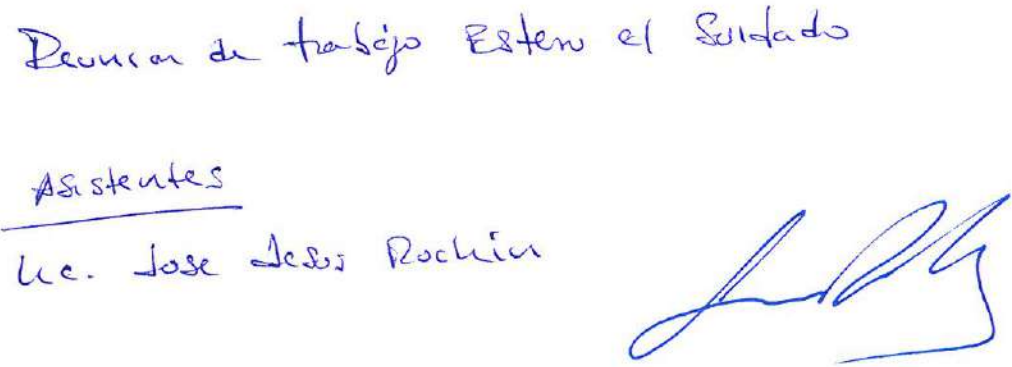 Reunion de trabajo Estero el Soldado
Asistentes
Lic. Jose Jesus Rochin